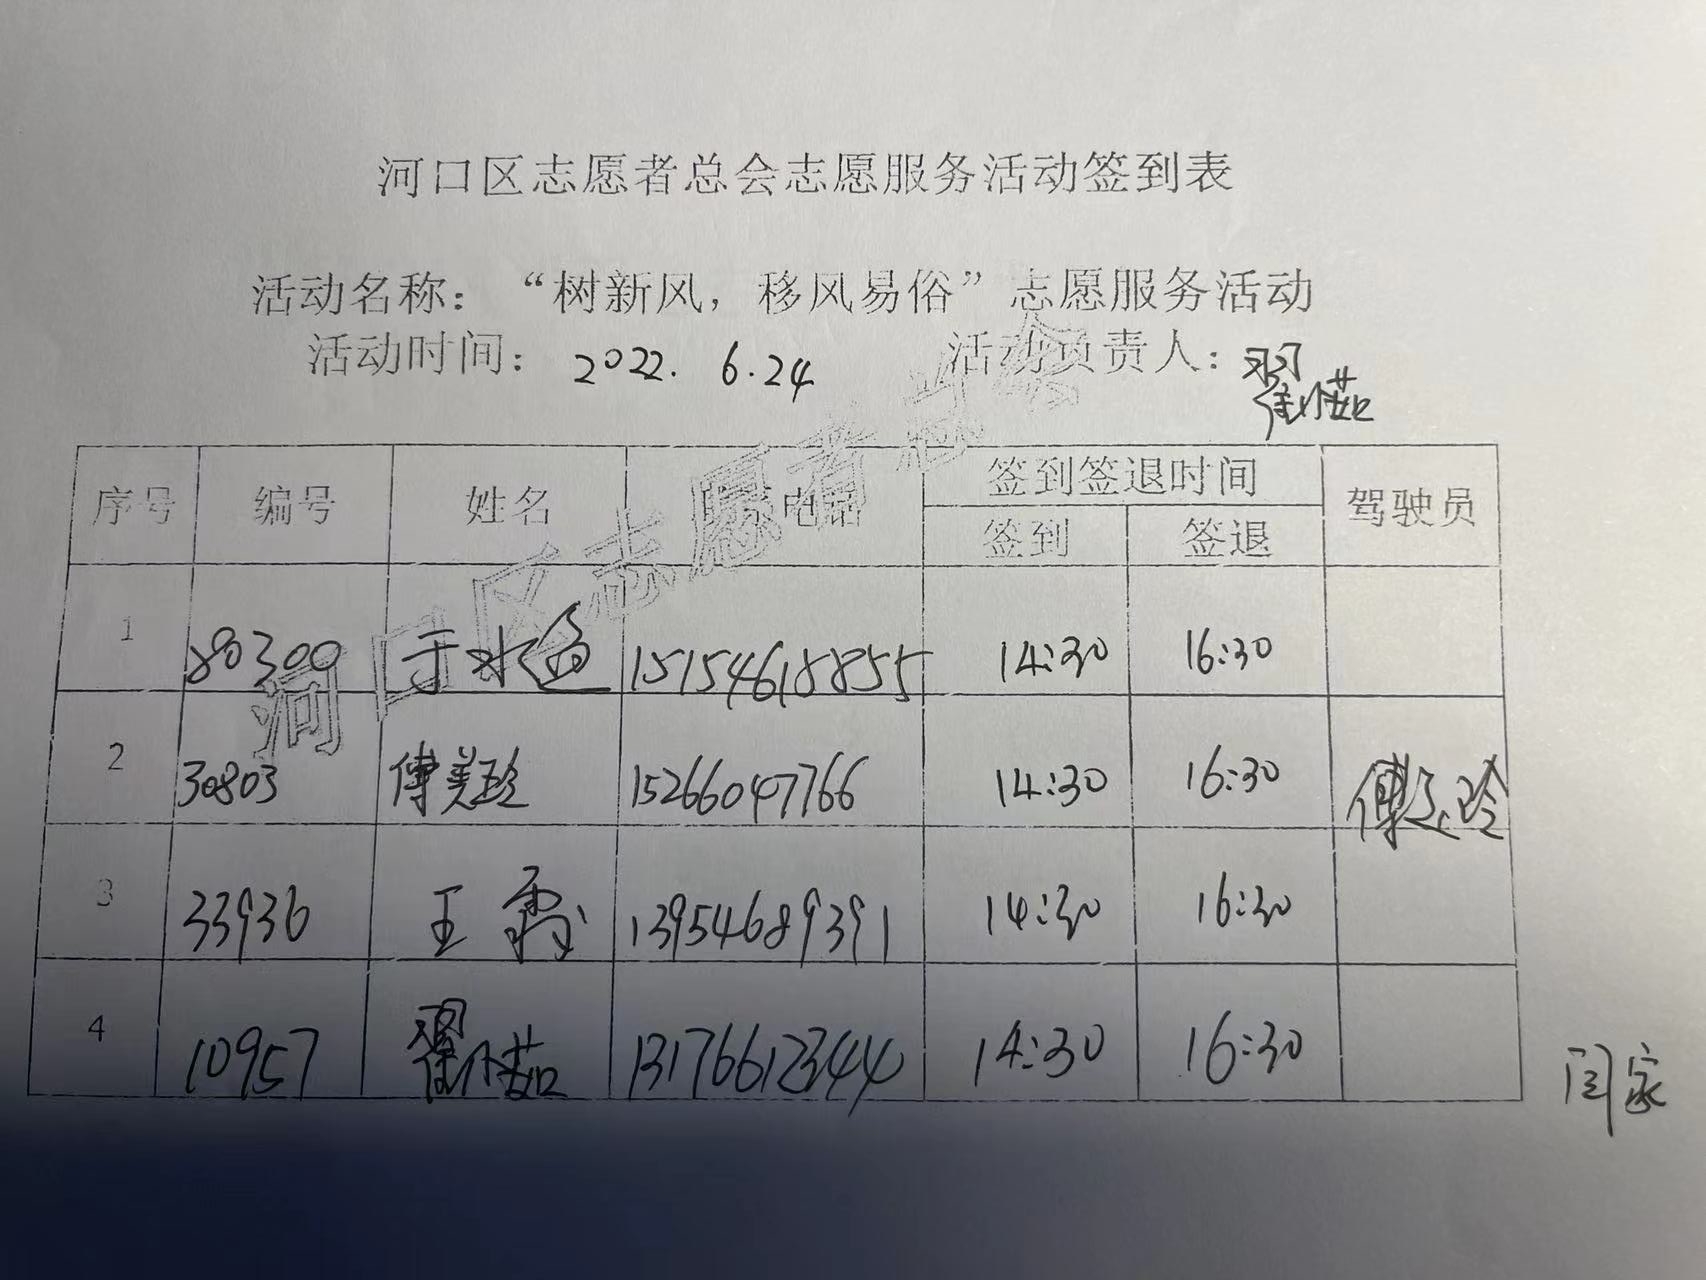 河口区志愿者总会志愿服务活动签到表
活动名称：“树新风，移风易俗”志愿服务活动
活动时间：2022. 6.24 活动负责人：翟小茹
序号 编号 姓名 联系电话 签到签退时间 驾驶员
签到 签退
1 80300 于水 15154618855 14:30 16:30
2 30803 傅美玲 15266047766 14:30 16:30 傅美玲
3 33936 王霞 13954689391 14:30 16:30
4 10957 翟小茹 13176612344 14:30 16:30
闫家
河口区志愿者总会